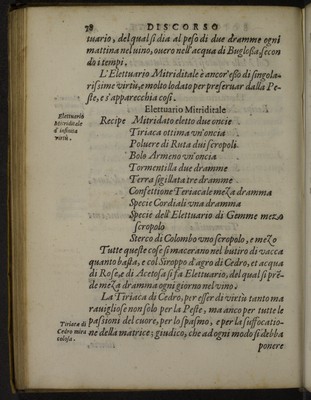 78 DISCORSO
tuario, del qual si dia al peso di due dramme ogni
mattina nel uino, ouero nell'acqua di Buglossa, secon
do i tempi.
L'Elettuario Mitriditale è ancor'esso di singola-
rissime virtù, e molto lodato per preseruar dalla Pe-
ste, e s'apparecchia così.
Elettuario
Mitriditale
d'infinita
virtù.
Elettuario Mitriditale
Recipe Mitridato eletto due oncie
Tiriaca ottima vn'oncia
Poluere di Ruta dui scropoli
Bolo Armeno vn'oncia
Tormentilla due dramme
Terra sigillata tre dramme
Confettione Teriacale meza dramma
Specie Cordiali vna dramma
Specie dell'Elettuario di Gemme mezo
scropolo
Sterco di Colombo vno scropolo, e mezo
Tutte queste cose si macerano nel butiro di vacca
quanto basta, e col Siroppo d'agro di Cedro, et acqua
di Rose, e di Acetosa si fa Elettuario, del qual si prē-
de meza dramma ogni giorno nel vino.
La Tiriaca di Cedro, per esser di virtù tanto ma
rauigliose non solo per la Peste, ma anco per tutte le
Tiriaca di
Cedro mira
colosa.
passioni del cuore, per lo spasmo, e per la suffocatio-
ne della matrice; giudico, che ad ogni modo si debba
ponere